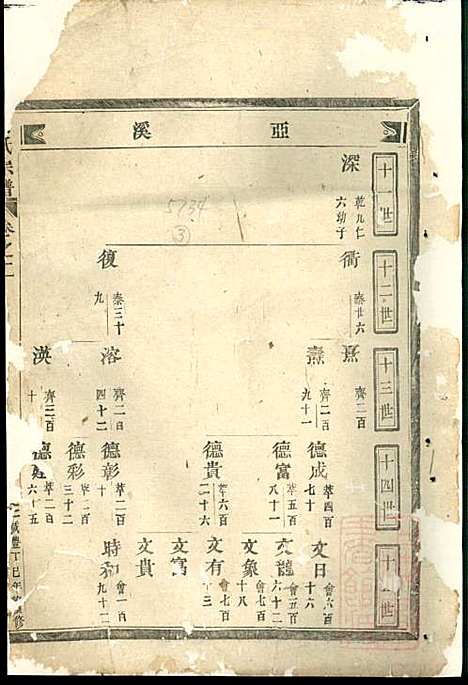 亞溪
十一世
十二世
十三世
十四世
十
世
深
乾九仁
六幼子
衢
秦廿六
復
秦三十
九
熹
齊二百
燾
齊二百
九十一
溶
齊二百
四十二
漢
齊二百
十
德成
萃四百
七十
德富
萃五百
八十一
德貴
萃六百
二十六
德彰
萃二百
十
德彩
萃二百
三十二
德
萃二百
六十五
文日
會六百
十六
文龍
會五百
六十二
文象
會七百
十八
文有
會七百
十三
文富
文貴
時和
會一百
九十二
氏宗譜
卷之一
咸豐丁巳年
修
5734
③